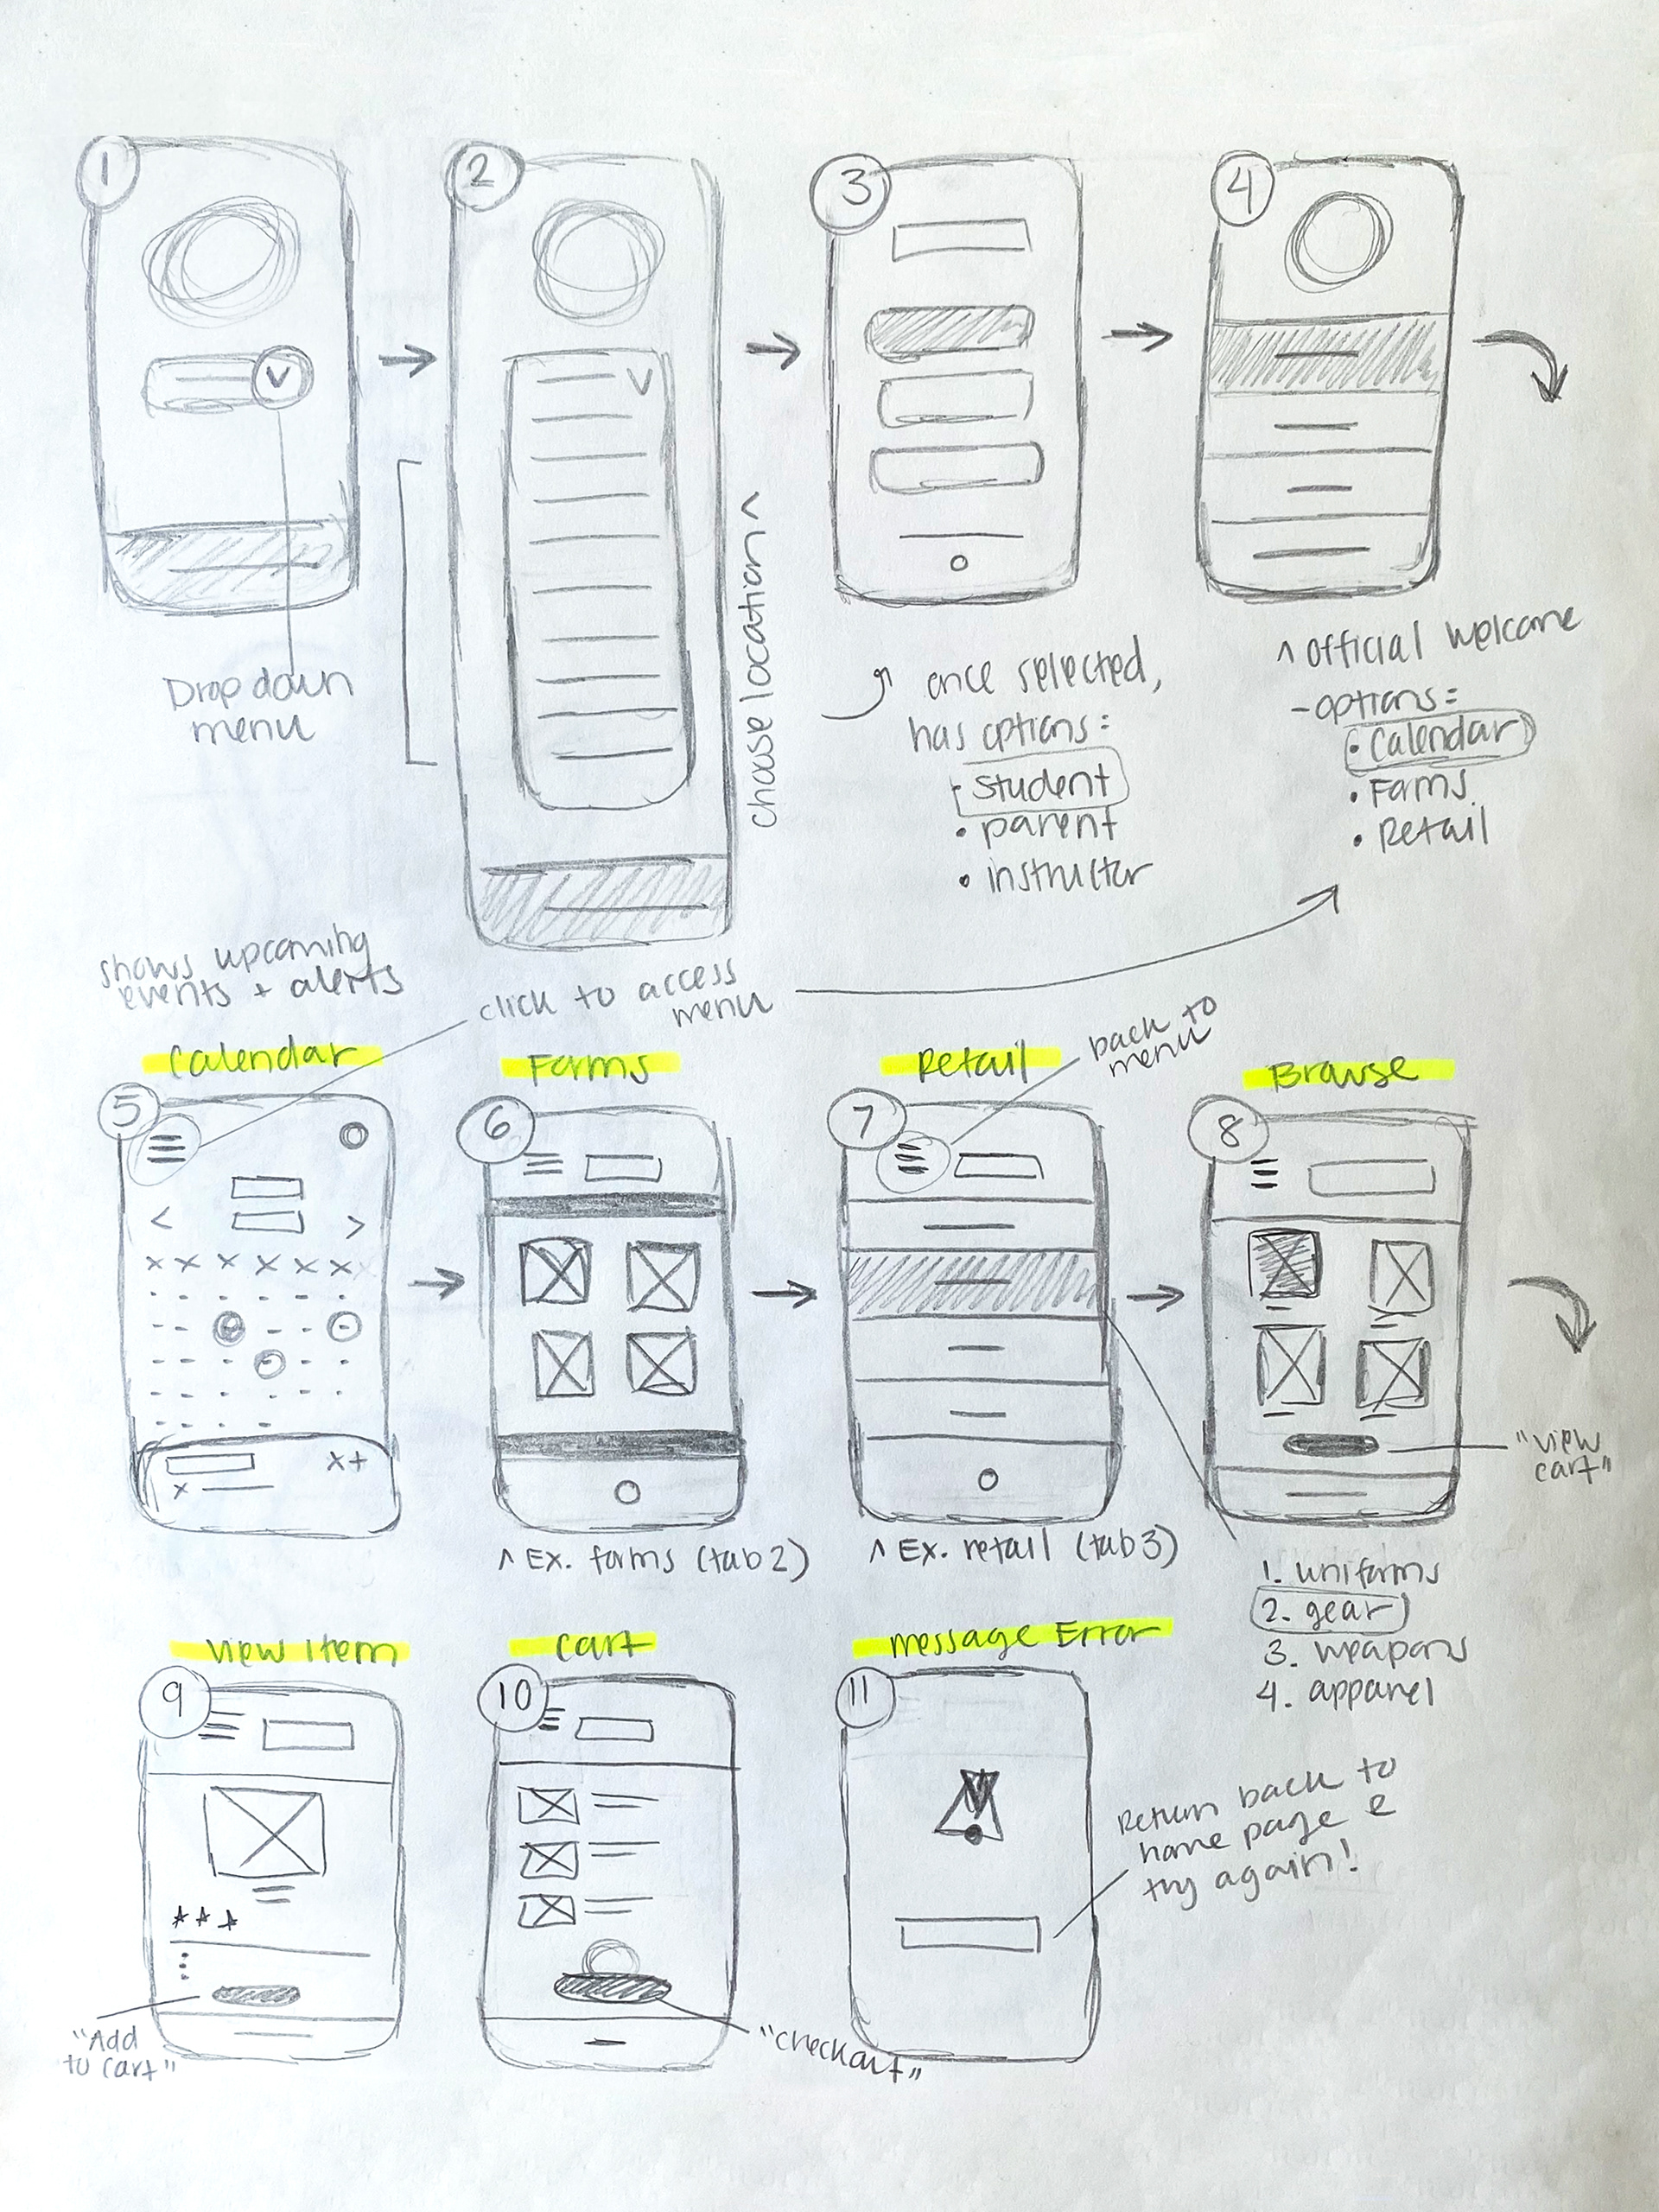 1
2
3
4
Drop down
menu
choose location ^
once selected,
has options:
• student
• parent
• instructor
^ official welcome
- options:
• Calendar
• Forms
• Retail
shows upcoming
events + alerts
click to access
menu
back to
menu
Calendar
Forms
Retail
Browse
5
6
7
8
< >
x x x x x x
x+
x
"view
cart"
^ Ex. forms (tab 2)
^ Ex. retail (tab 3)
1. uniforms
2. gear
3. weapons
4. apparel
View item
Cart
message Error
9
10
11
Return back to
home page &
try again!
"Add
to cart"
"checkout"